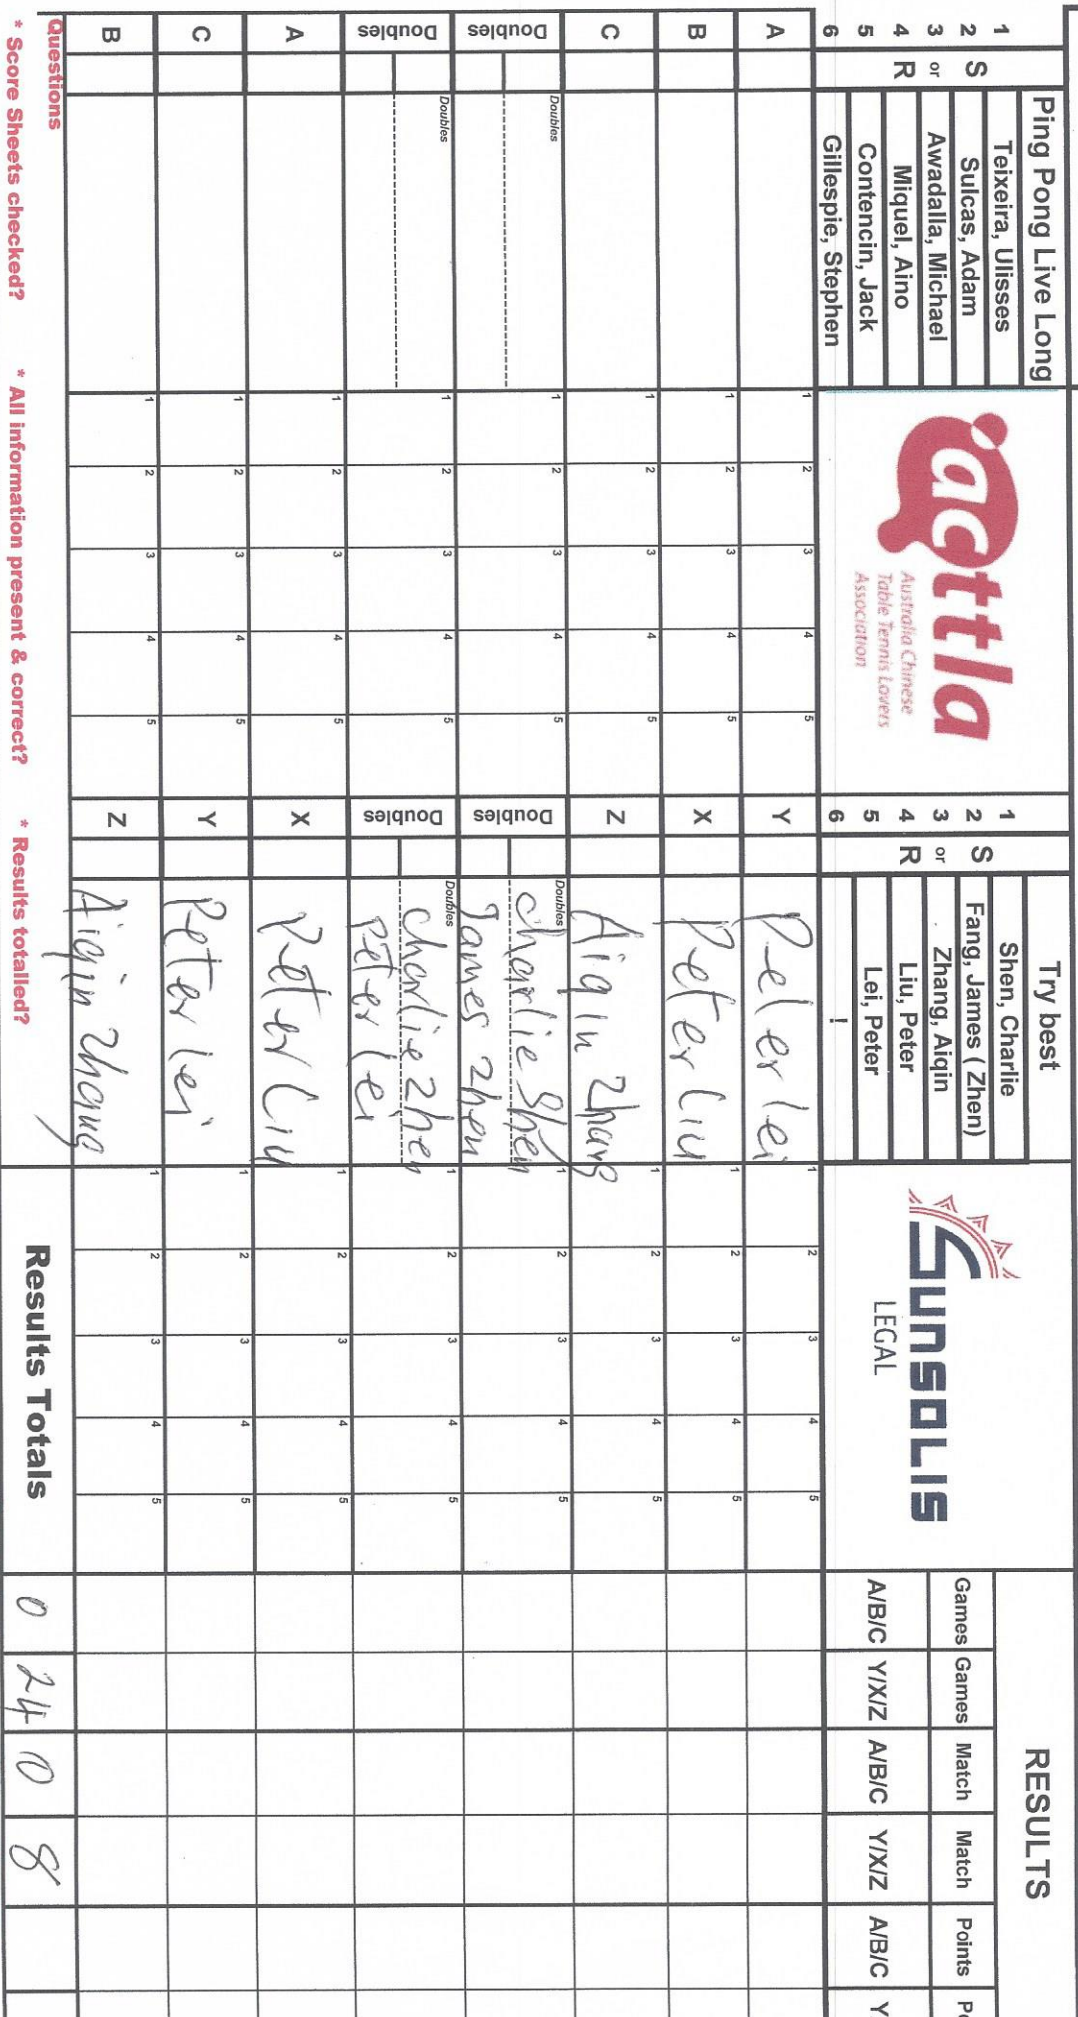 Ping Pong Live Long
1 Teixeira, Ulisses
2 S Sulcas, Adam
3 or Awadalla, Michael
4 R Miquel, Aino
5 Contencin, Jack
6 Gillespie, Stephen
acttla
Australia Chinese
Table Tennis Lovers
Association
Try best
1 Shen, Charlie
2 S Fang, James ( Zhen)
3 or Zhang, Aiqin
4 R Liu, Peter
5 Lei, Peter
6 !
SUNSOLIS
LEGAL
RESULTS
Games Games Match Match Points Po
A/B/C Y/X/Z A/B/C Y/X/Z A/B/C Y
A 1 2 3 4 5 Y Peter Lei 1 2 3 4 5
B 1 2 3 4 5 X Peter Liu 1 2 3 4 5
C 1 2 3 4 5 Z Aiqin Zhang 1 2 3 4 5
Doubles Doubles 1 2 3 4 5 Doubles Doubles Charlie Shen 1 2 3 4 5
James Zhen
Doubles Doubles 1 2 3 4 5 Doubles Doubles Charlie Zhen 1 2 3 4 5
Peter Lei
A 1 2 3 4 5 X Peter Liu 1 2 3 4 5
C 1 2 3 4 5 Y Peter Lei 1 2 3 4 5
B 1 2 3 4 5 Z Aiqin Zhang 1 2 3 4 5
Questions
Results Totals 0 24 0 8
* Score Sheets checked? * All information present & correct? * Results totalled?